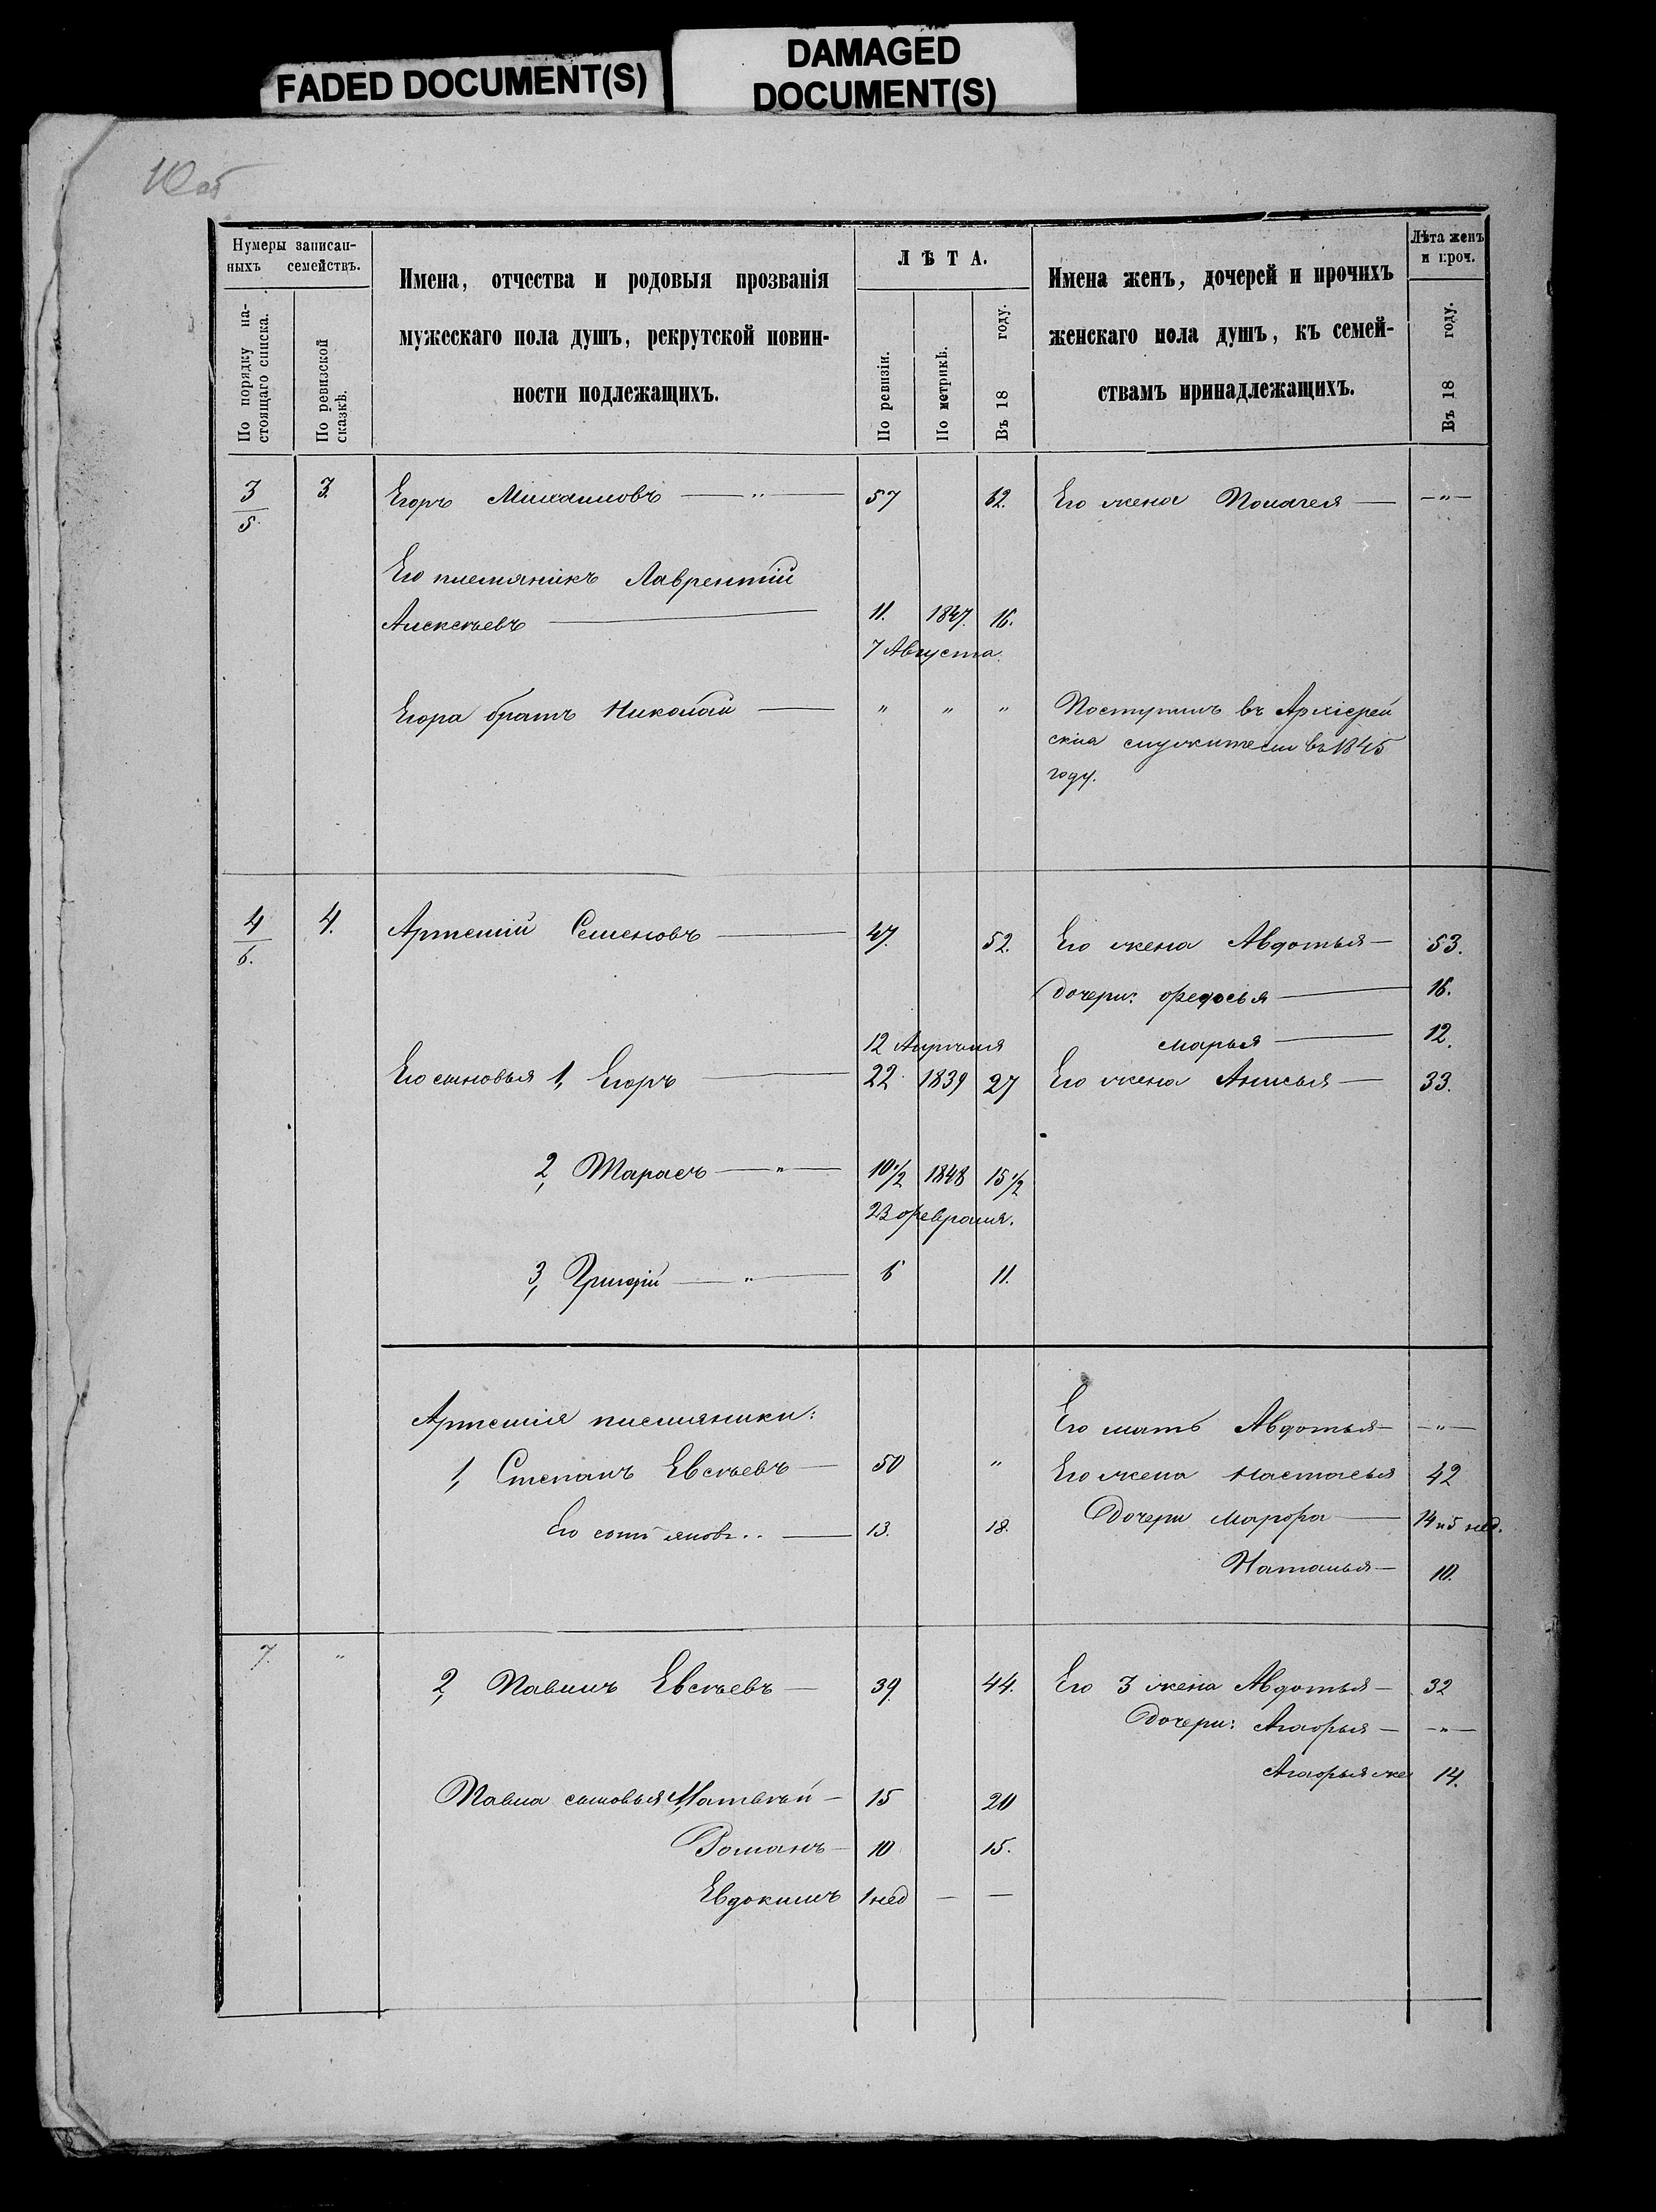 FADED DOCUMENT(S)
DAMAGED
DOCUMENT(S)
10 об
Нумеры записан-
ныхъ семействъ.
По порядку на-
стоящаго списка.
По ревизской
сказкѣ.
Имена, отчества и родовыя прозванія
мужескаго пола душъ, рекрутской повин-
ности подлежащихъ.
ЛѢТА.
По ревизіи.
По метрикѣ.
Въ 18 году.
Имена женъ, дочерей и прочихъ
женскаго пола душъ, къ семей-
ствамъ принадлежащихъ.
Лѣта женъ
и проч.
Въ 18 году.
3/5. 3. Егоръ Михаиловъ — " — 57 62. Его жена Полагея — — " —
Его племяникъ Лаврентій
Алексѣевъ — 11. 1847. 16.
7 Августа.
Егора братъ Николай — " " " Поступилъ въ Архіерей
скіа служители въ 1845
году.
4/6. 4. Артемій Семеновъ — 47. 52. Его жена Авдотья — 53.
дочери: Федосья — 16.
12 Апрѣля Марья — 12.
Его сыновья 1, Егоръ — 22 1839 27 Его жена Анисья — 33.
2, Тарасъ — " — 10 1/2 1848 15 1/2
23 февраля.
3, Григорій — " — 6 11.
Артемія племяники: Его мать Авдотья — — " —
1, Степанъ Евсѣевъ — 50 " Его жена Настасья 42
Его сынъ Яковъ.. — 13. 18. Дочери Марфа — 14 и 5 нед.
Наталья — 10.
7. " 2, Павилъ Евсѣевъ — 39. 44. Его 3 жена Авдотья — 32
Дочери: Агафья — — " —
Агафья же 14.
Павла сыновья Матвѣй — 15 20
Романъ — 10 15.
Евдокимъ 1 нед — —